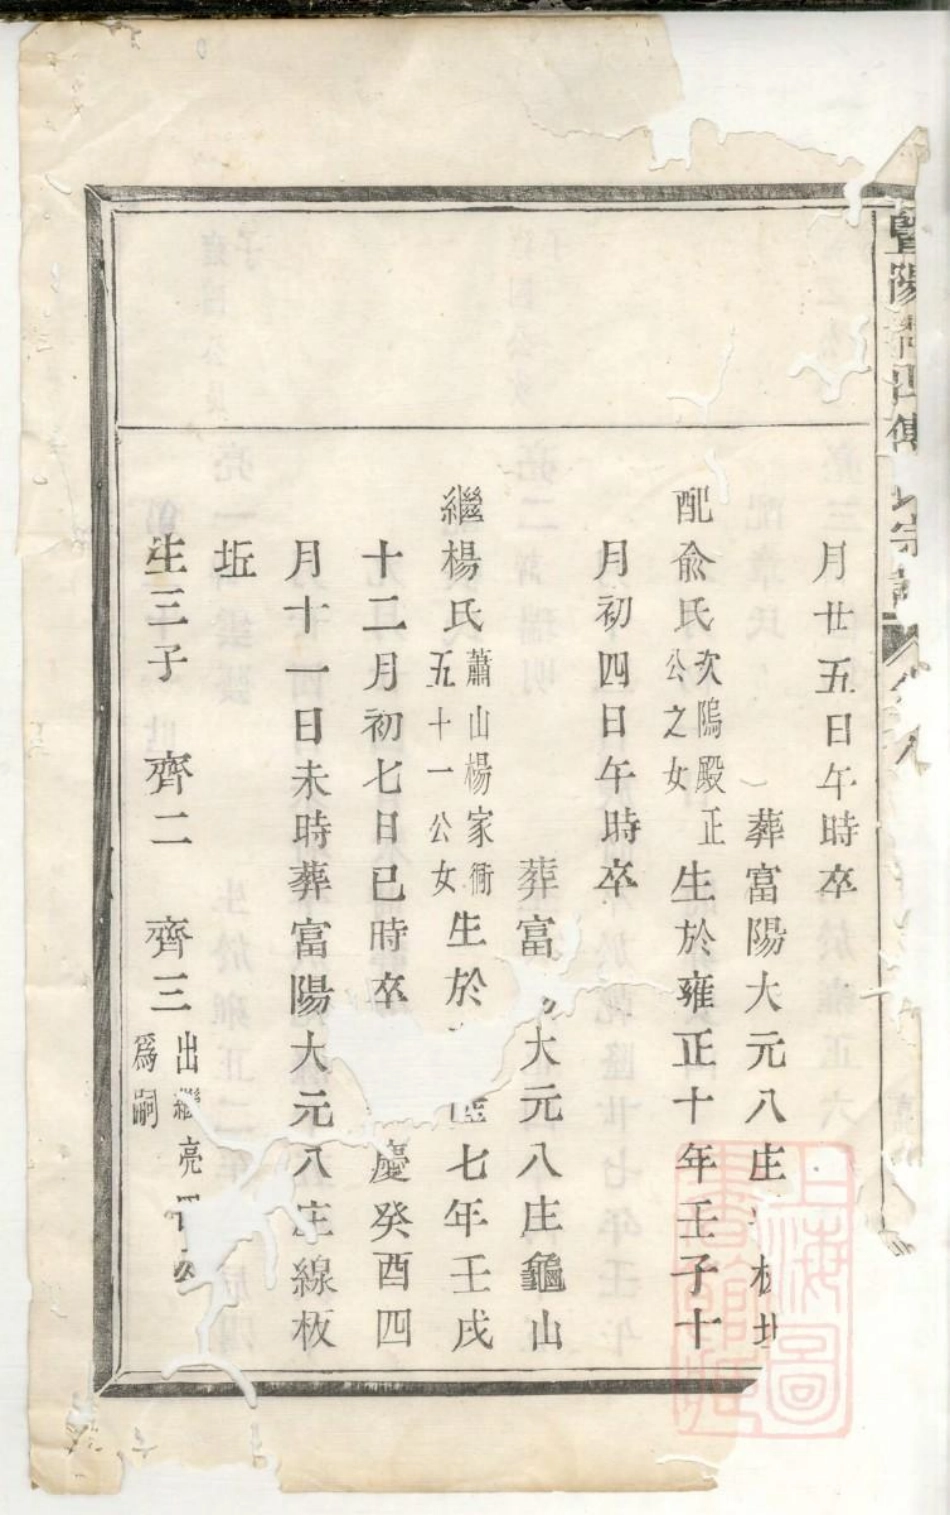 暨陽
月廿五日午時卒
葬富陽大元八庄
配俞氏次隖殿正公之女生於雍正十年壬子十
月初四日午時卒
葬富大元八庄龜山
繼楊氏蕭山楊家衕五十一公女生於七年壬戌
十二月初七日巳時卒慶癸酉四
月十一日未時葬富陽大元八庄線板
坵
生三子 齊二 齊三出繼亮為嗣